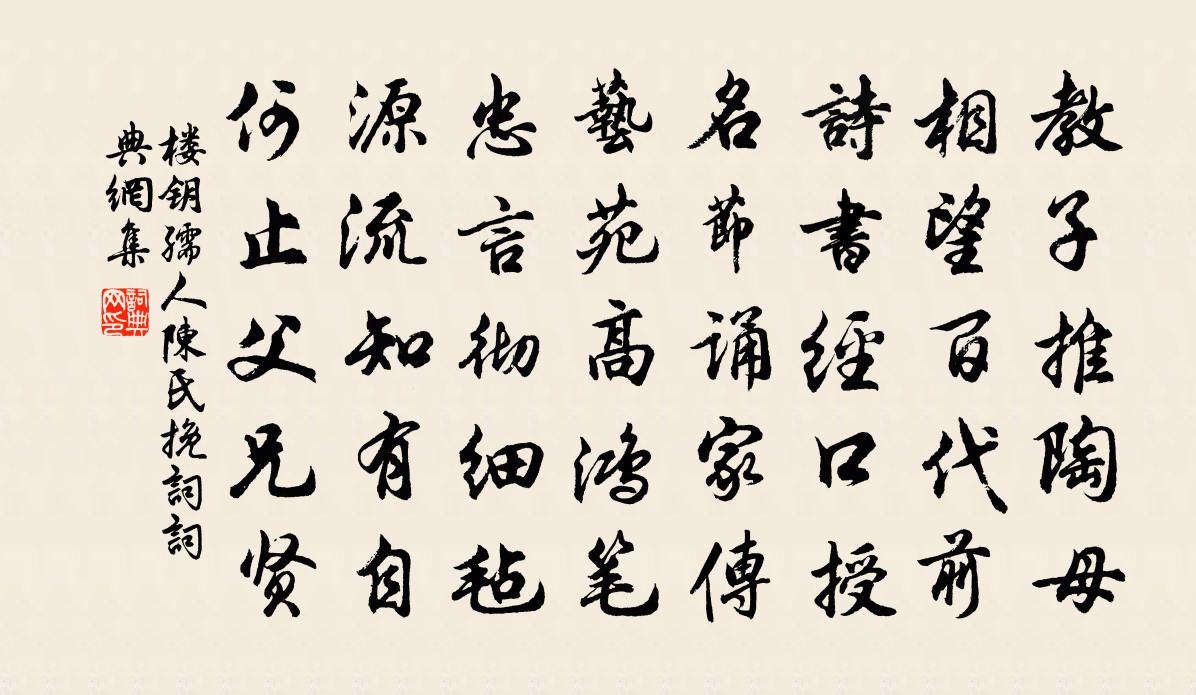 教子推陶母
相望百代前
詩書經口授
名節誦家傳
藝苑高鴻笔
忠言彻細毡
源流知有自
何止父兄贤
楼钥孺人陳氏挽詞詞
典網集
詞典
网印